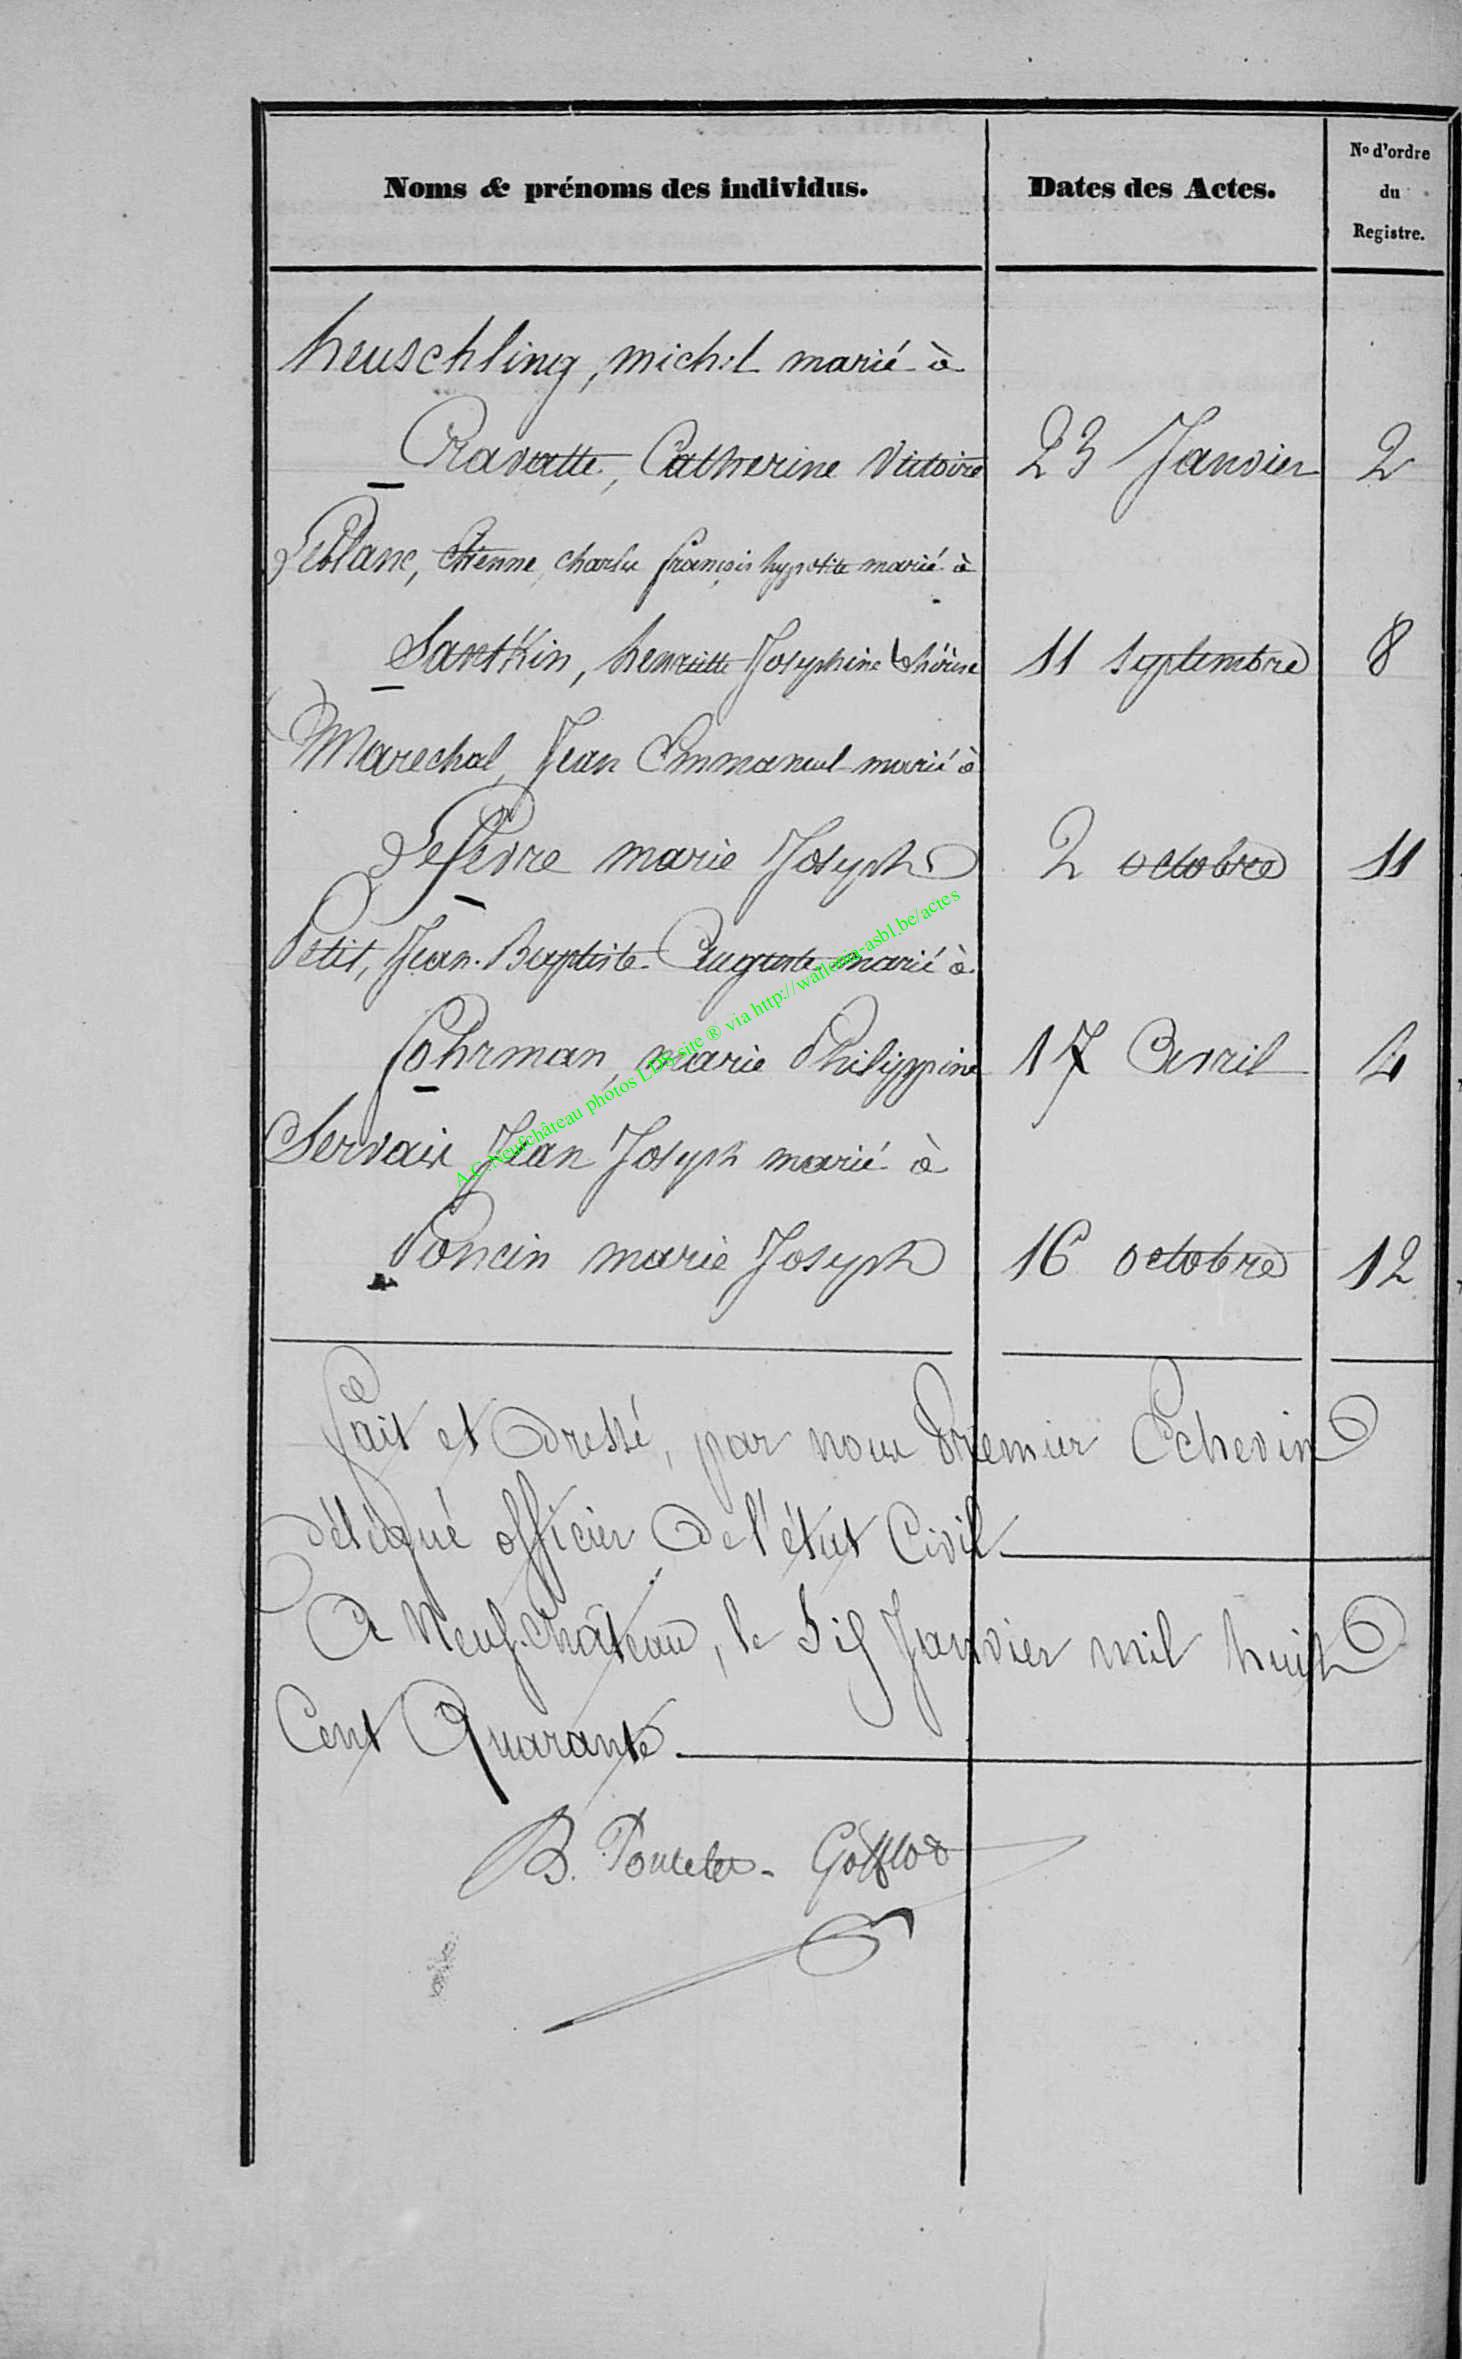 Noms & prénoms des individus. Dates des Actes. No d'ordre du Registre.
heuschling, michel marié à
Cravatte, Catherine Victoire 23 Janvier 2
Leblanc, Etienne, Charles françois hypolite marié à
Santkin, henriette Josephine thérèse 11 Septembre 8
Marechal, Jean Emmanuel marié à
Lefevre marie Joseph 2 octobre 11
Petit, Jean-Baptiste Auguste marié à
fohrman, marie Philippine 17 Avril 4
Servais Jean Joseph marié à
Poncin marie Joseph 16 octobre 12
Fait et Dressé, par nous Premier Echevin
délégué officier De l'état Civil
A Neufchâteau, le Janvier mil huit
Cent Quarante
B.
A.C. Neufchâteau photos LDS site ® via http://wallonia-asbl.be/actes